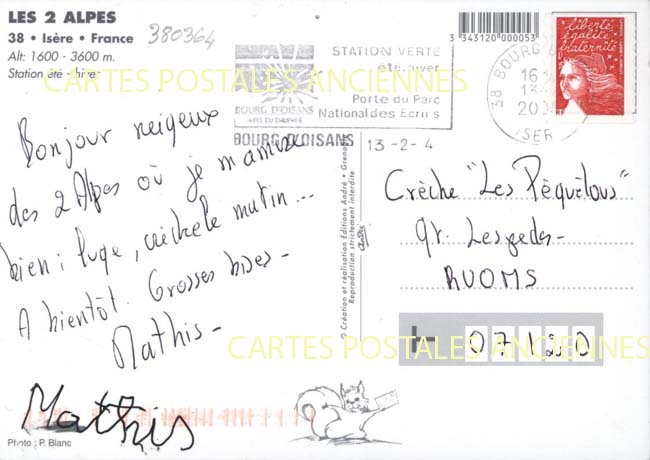 LES 2 ALPES
38 • Isère • France
Alt: 1600 - 3600 m.
Station été - hiver
380364
STATION VERTE
été-hiver
Porte du Parc
National des Ecrins
BOURG D'OISANS
ALPES DU DAUPHINE
BOURG D'OISANS
3 343120 000053
38 BOURG
16
20
ISER
liberté
égalité
fraternité
RF
CARTES POSTALES ANCIENNES
13-2-4
Bonjour neigeux
des 2 Alpes où je m'amuse
bien : luge, le matin...
A bientôt. Grosses bises -
Mathis -
Mathis
© Création et réalisation Éditions André • Grenoble
Reproduction strictement interdite
Crèche "Les Péquélous"
qr. Lespedes -
RUOMS
07120
CARTES POSTALES ANCIENNES
Photo : P. Blanc